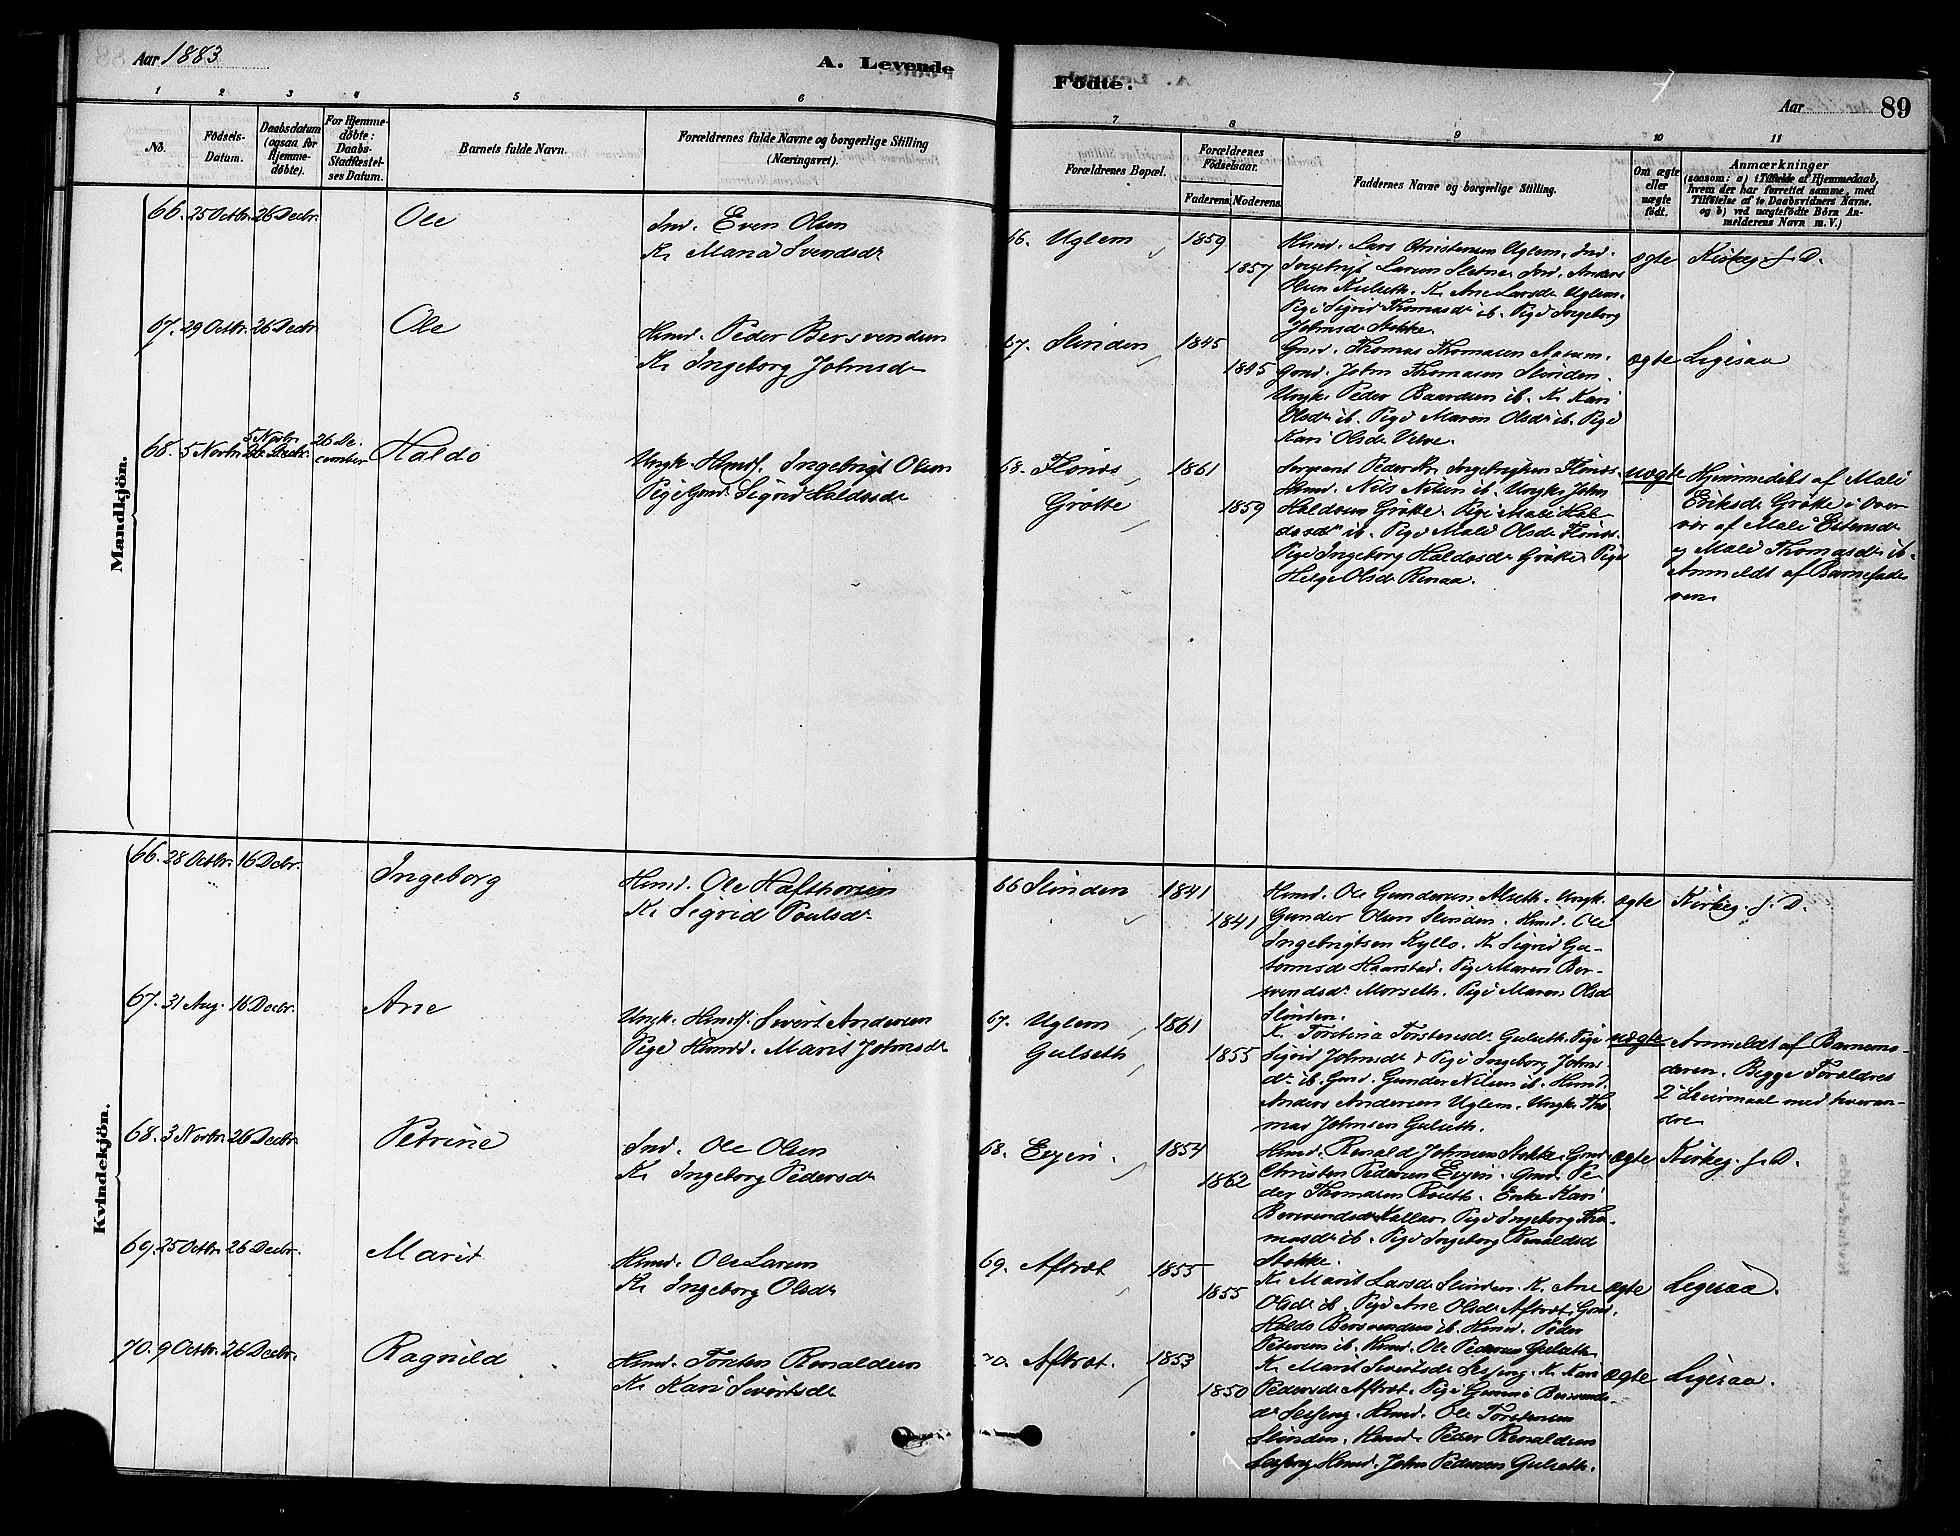 Aar 1883
A. Levende
Födte.
Aar
89
1 2 3 4 5 6 7 8 9 10 11
No.
Födsels-
Datum.
Daabsdatum
(ogsaa for
Hjemme-
døbte).
For Hjemme-
døbte:
Daabs-
Stadfæstel-
ses Datum.
Barnets fulde Navn.
Forældrenes fulde Navne og borgerlige Stilling
(Næringsvei).
Forældrenes Bopæl.
Forældrenes
Födselsaar.
Faderens. Moderens.
Faddernes Navne og borgerlige Stilling.
Om ægte
eller
uægte
født.
Anmærkninger
(saasom: a) i Tilfælde af Hjemmedaab,
hvem der har forrettet samme, med
Tilføielse af to Daabsvidners Navne.
og b) ved uægtefødte Börn An-
melderens Navn m. V.)
Mandkjön.
66. 25 Octbr. 26 Decbr. Ole
Ind. Even Olsen
K. Marid Svendsdr
66. Uglem 1859
1857
Hmd. Lars Christensen Uglem. Ind.
Ingebrigt Larsen Sletne. Ind. Anders
Olsen Kulseth. K. Ane Larsdr Uglem.
Pige Sigrid Thomasdr ib. Pige Ingeborg
Johnsdr Stokke.
ægte
Kirkeg. f. D.
67. 29 Octbr. 26 Decbr. Ole
Hmd. Peder Bersvendsen
K. Ingeborg Johnsdr
67. Slinden 1845
1845
Gmd. Thomas Thomasen Aasum.
Gmd. John Thomasen Slinden.
Ungk. Peder Baardsen ib. K. Kari
Olsdr ib. Pige Maren Olsdr ib. Pige
Kari Olsdr Velve.
ægte
Ligesaa
68. 5 Novbr. 5 Novbr. 26 Decbr. 26 De-
cember
Haldo
Ungk. Hmdf. Ingebrigt Olsen
Pige Gmd. Sigrid Haldosdr
68. Flønes
Grøtte
1861
1859
Sergeant Peder Kr. Ingebrigtsen Flönes.
Hmd. Nils Nilsen ib. Ungk. John
Haldosen Grøtte. Pige Mali Hal-
dosdr ib. Pige Mali Olsdr Flönes.
Pige Ingeborg Haldosdr Grøtte. Pige
Helge Olsdr Renaa.
uægte
Hjemmedøbt af Mali
Eriksdr Grøtte i Over-
vær af Mali Estensdr
og Mali Thomasdr ib.
Anmeldt af Barnefade-
ren.
Kvindekjön.
66. 28 Octbr. 16 Decbr. Ingeborg
Hmd. Ole Hafthorsen
K. Sigrid Poulsdr
66 Slinden 1841
1841
Hmd. Ole Gundersen Alseth. Ungk.
Gunder Olsen Slinden. Hmd. Ole
Ingebrigtsen Kyllo. K. Sigrid Gu-
tormsdr Haarstad. Pige Maren Ber-
svendsdr Morseth. Pige Maren Olsdr
Slinden.
ægte
Kirkeg. f. D.
67. 31 Aug. 16 Decbr. Ane
Ungk. Hmdf. Sivert Andersen
Pige Hmdd. Marit Johnsdr
67. Uglem
Gulseth
1861
1855
K. Torstina Torstensdr Gulseth. Pige
Sigrid Johnsdr & Pige Ingeborg Johns-
dr ib. Gmd. Gunder Nilsen ib. Hmd.
Anders Andersen Uglem. Ungk. Tho-
mas Johnsen Gulseth.
uægte
Anmeldt af Barnemo-
deren. Begge Forældres
2det Leiermaal med hveran-
dre
68. 3 Novbr. 26 Decbr. Petrine
Ind. Ole Olsen
K. Ingeborg Pedersdr
68. Evjen. 1854
1862
Hmd. Renald Johnsen Stokke. Gmd
Christen Pedersen Evjen. Gmd. Pe-
der Thomasen Roseth. Enke Kari
Bersvendsdr Kallar. Pige Ingeborg Tho-
masdr ib. Pige Ingeborg Renaldsd
Stokke.
ægte
Kirkeg. f. D.
69. 25 Octbr. 26 Decbr. Marit
Hmd. Ole Larsen
K. Ingeborg Olsdr
69. Aftræt 1855
1855
K. Marit Larsdr Slinden. K. Ane
Olsdr ib. Pige Ane Olsdr Aftræt. Gmd.
Haldo Bersvendsen ib. Hmd. Peder
Petersen ib. Hmd. Ole Pedersen Gulseth.
ægte
Ligesaa.
70. 9 Octbr. 26 Decbr. Ragnild
Hmd. Torsten Renaldsen
K. Kari Sivertsdr
70. Aftræt. 1853
1850
K. Marit Sivertsdr Sesseng. K. Kari
Pedersdr Aftræt. Pige Bersvends-
dr Sesseng. Hmd. Ole Torstensen
Slinden. Hmd. Peder Renaldsen
Sesseng. Hmd. John Pedersen Gulseth.
ægte
Ligesaa.